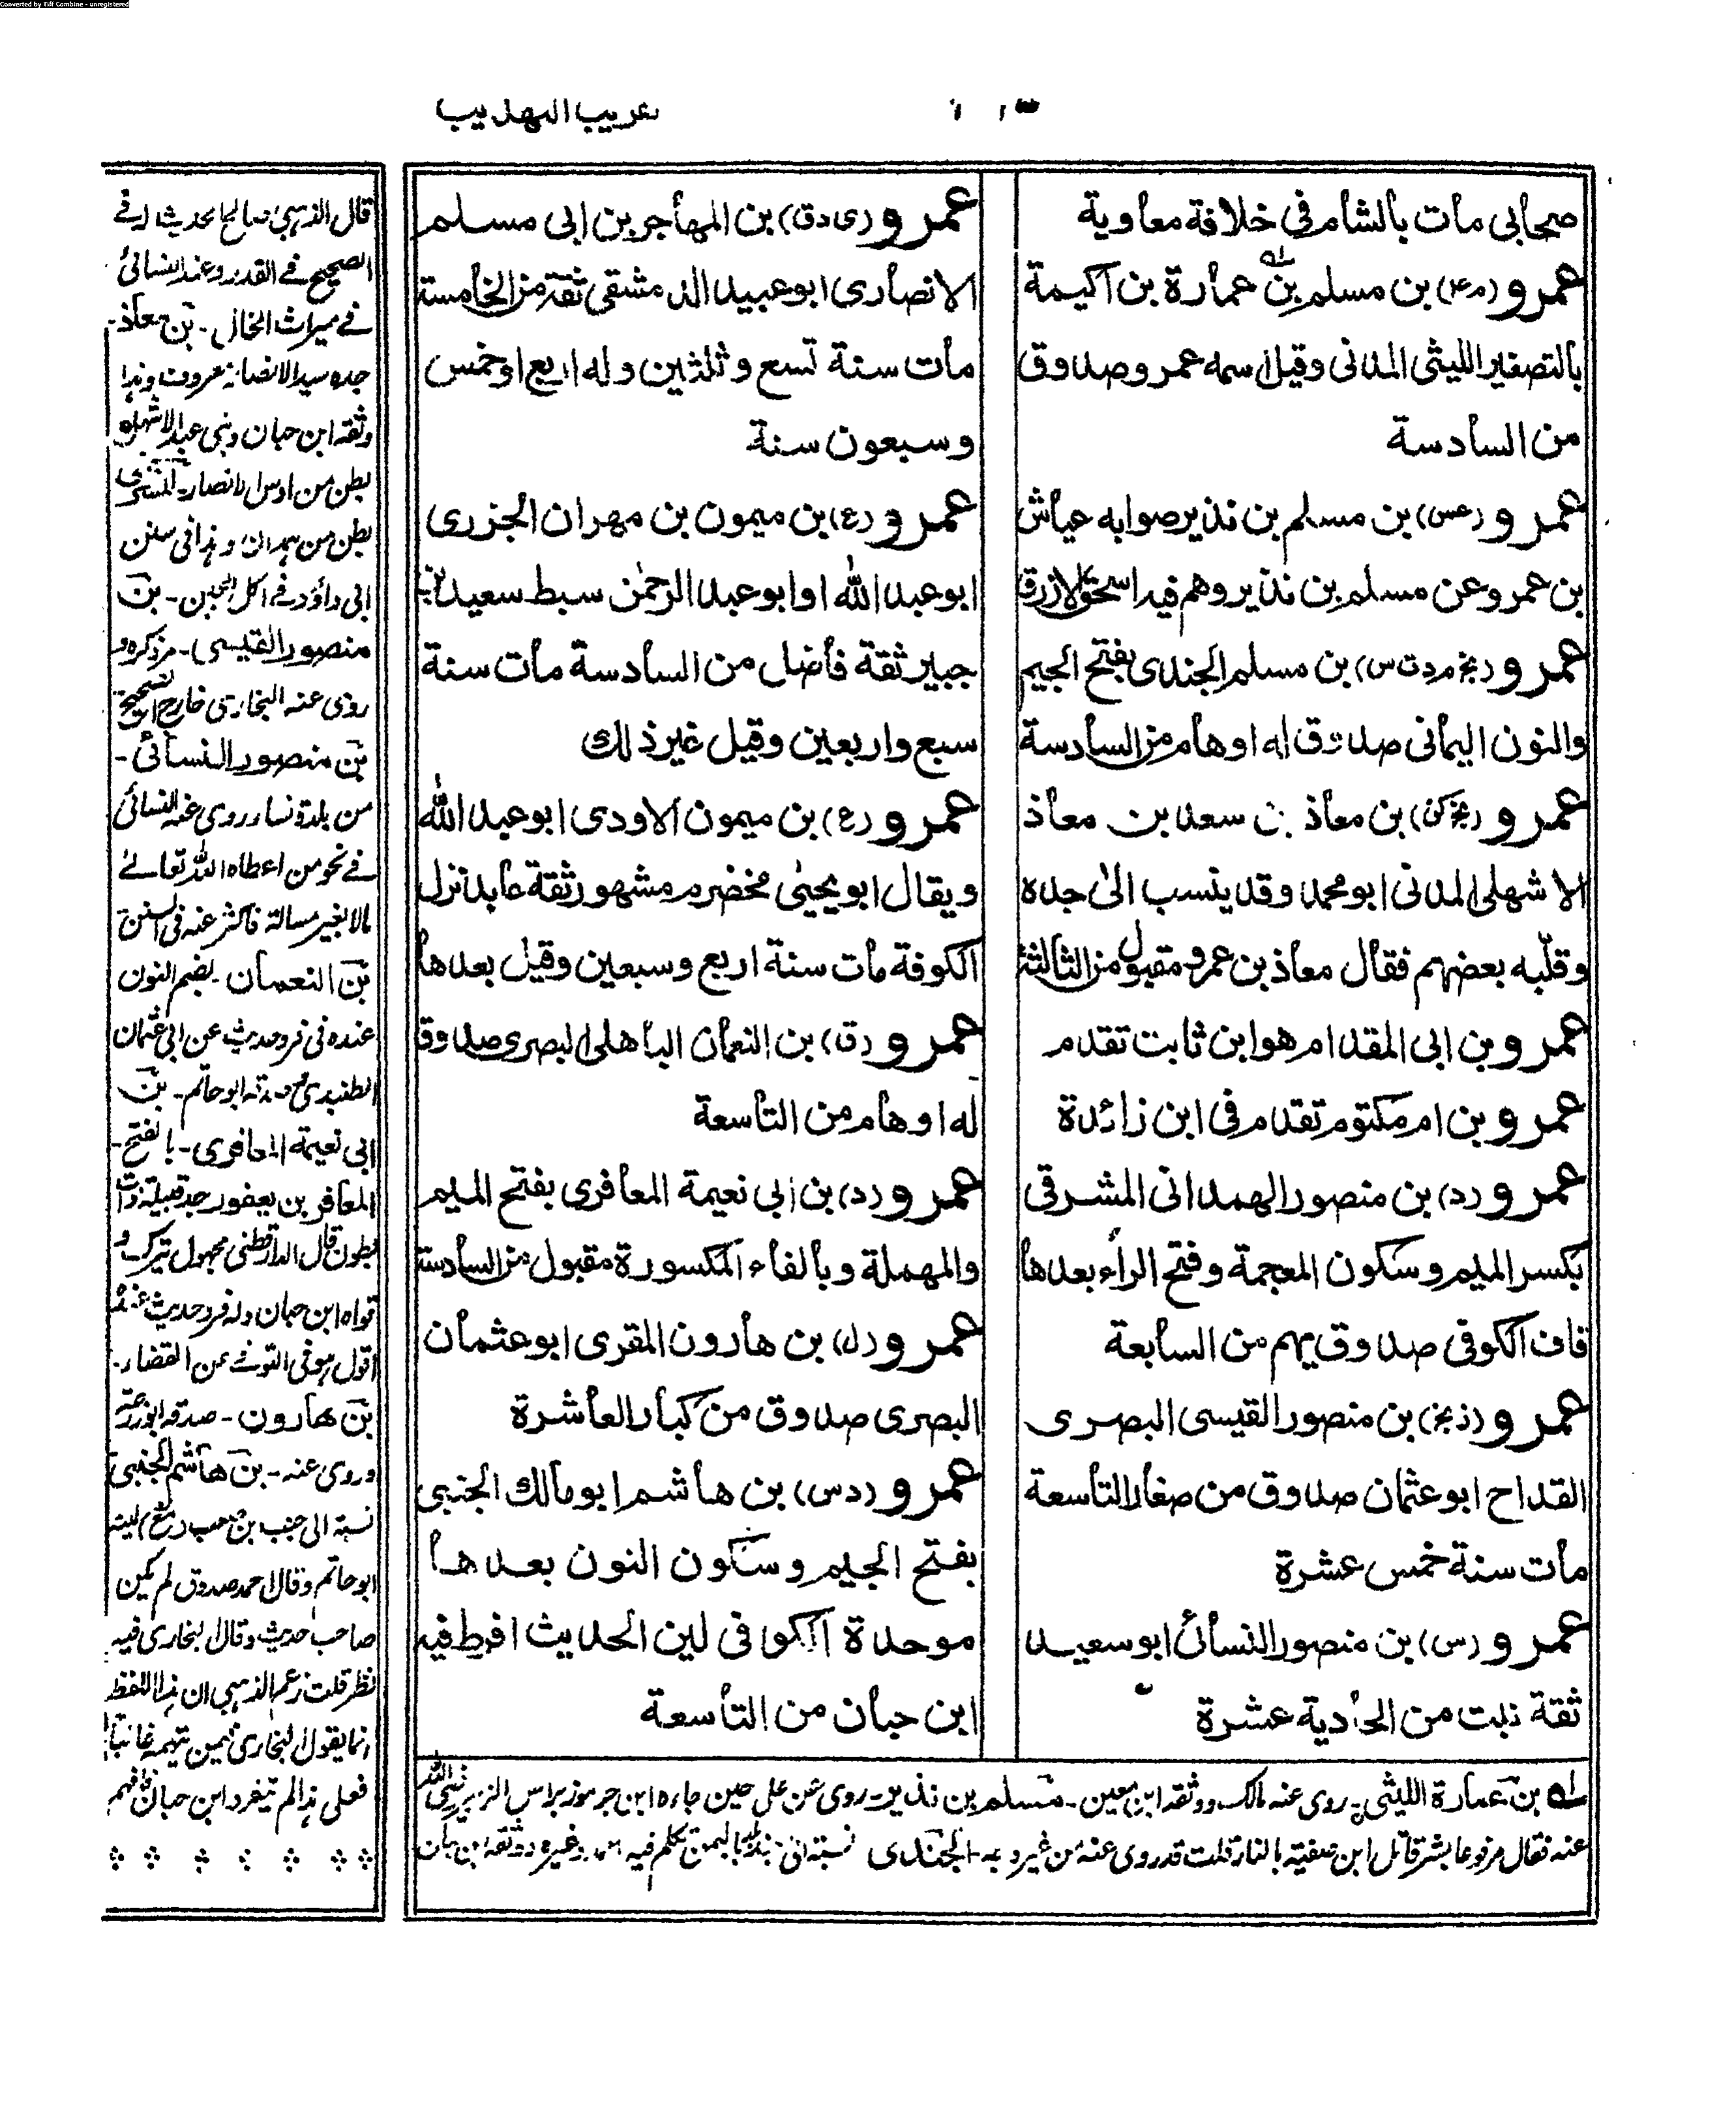 Converted by Tiff Combine - unregistered
صحابى مات بالشام فى خلافة معاوية
عمرو (م ٤) بن مسلم بن عمارة بن اكيمة
بالتصغير الليثى المدنى وقيل اسمه عمر وصدوق
من السادسة
عمرو (عس) بن مسلم بن نذير صوابه عياش
بن عمرو عن مسلم بن نذير وهم فيه اسحق الازرق
عمرو (عخ م د ت س) بن مسلم الجندى بفتح الجيم
والنون اليمانى صدوق له اوهام من السادسة
عمرو (بخ كن) بن معاذ بن سعد بن معاذ
الاشهلى المدنى ابو محمد وقد ينسب الى جده
وقلبه بعضهم فقال معاذ بن عمرو مقبول من الثالثة
عمرو بن ابى المقدام هو ابن ثابت تقدم
عمرو بن ام مكتوم تقدم فى ابن زائدة
عمرو (د) بن منصور الهمدانى المشرقى
بكسر الميم وسكون المعجمة وفتح الراء بعدها
قاف الكوفى صدوق يهم من السابعة
عمرو (ز بخ) بن منصور القيسى البصرى
القداح ابو عثمان صدوق من صغار التاسعة
مات سنة خمس عشرة
عمرو (س) بن منصور النسائى ابو سعيد
ثقة ثبت من الحادية عشرة
عمرو (ى د ق) بن المهاجر بن ابى مسلم
الانصارى ابو عبيد الدمشقى ثقة من الخامسة
مات سنة تسع وثلثين وله اربع او خمس
وسبعون سنة
عمرو (ع) بن ميمون بن مهران الجزرى
ابو عبد الله او ابو عبد الرحمٰن سبط سعيد بن
جبير ثقة فاضل من السادسة مات سنة
سبع واربعين وقيل غير ذلك
عمرو (ع) بن ميمون الاودى ابو عبد الله
ويقال ابو يحيىٰ مخضرم مشهور ثقة عابد نزل
الكوفة مات سنة اربع وسبعين وقيل بعدها
عمرو (ق) بن النعمان الباهلى البصرى صدوق
له اوهام من التاسعة
عمرو (د) بن ابى نعيمة المعافرى بفتح الميم
والمهملة وبالفاء المكسورة مقبول من السادسة
عمرو (ل) بن هارون المقرى ابو عثمان
البصرى صدوق من كبار العاشرة
عمرو (د س) بن هاشم ابو مالك الجنبى
بفتح الجيم وسكون النون بعدها
موحدة الكوفى لين الحديث افرط فيه
ابن حبان من التاسعة
له بن عمارة الليثى - روى عنه مالك ووثقه ابن معين - مسلم بن نذير - روى عن على حين جاءه ابن جرموز براس الزبير رضى الله
عنه فقال مرفوعا بشر قاتل ابن صفية بالنار قلت قد روى عنه من غير وجه - الجندى نسبة الى بلد باليمن تكلم فيه احمد وغيره ووثقه ابن حبان
قال الذهبى صالح الحديث له فى
الصحيح فى القدر وعند النسائى
فى ميراث الخال - بن معاذ -
جده سيد الانصار معروف وهذا
وثقه ابن حبان وبنى عبد الاشهل
بطن من اوس الانصار - المشرقى
بطن من همدان وهذا فى سنن
ابى داؤد فى اكل الجبن - بن
منصور القيسى - مر ذكره و
روى عنه البخارى خارج الصحيح
بن منصور النسائى -
من بلدة نسا روى عنه النسائى
فى نحو من اعطاه الله تعالے
مالا بغير مسالة فاكثر عنه فى السنن
بن النعمان - بضم النون
عنده فى فرد حديث عن ابى عثمان
ابو حاتم - بن
ابى نعيمة المعافرى - بالفتح -
المعافر بن يعفور جد قبيلة ذات
بطون قال الدارقطنى مجهول يترك و
قواه ابن حبان وله فرد حديث عنده
اقول هو فى التوقى عن القضاء -
بن هارون - صدقه ابو زرعة
وروى عنه - بن هاشم الجنبى
نسبة الى جنب بن صعب لينه
ابو حاتم وقال احمد صدوق لم يكن
صاحب حديث وقال البخارى فيه
نظر قلت زعم الذهبى ان هذا اللفظ
انما يقول البخارى فيمن يتهمه غالبا
فعلى هذا لم يتفرد ابن حبان فافهم